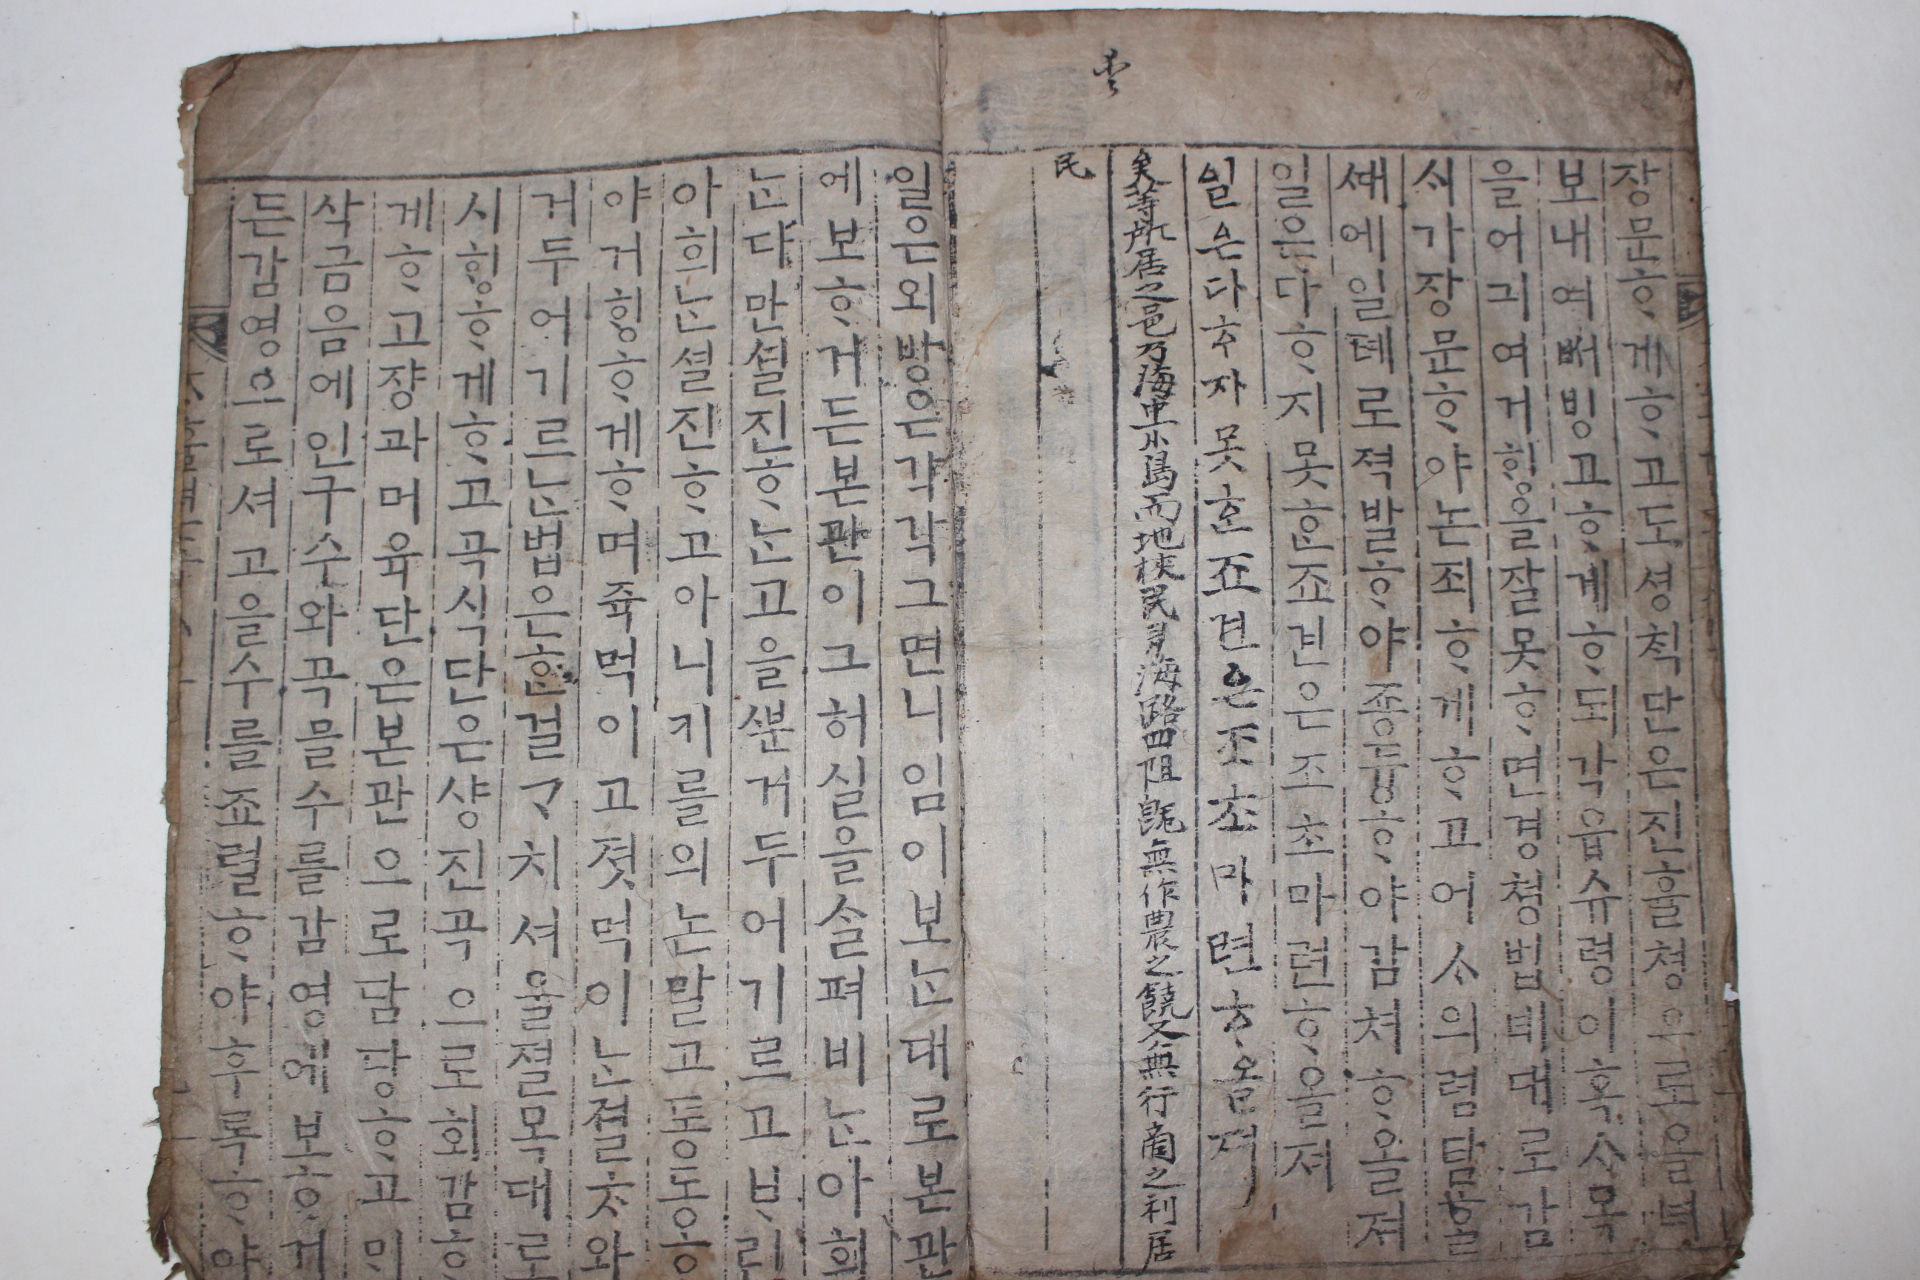 장문ᄒᆞ게ᄒᆞ고도셩칙단은진휼쳥으로올녀
보내여ᄲᅢ빙고ᄒᆞ게ᄒᆞ되각읍슈령이혹ᄉᆞ목
을어긔여거ᄒᆡᆼ을잘못ᄒᆞ면경쳥법뎨대로감
ᄉᆡ가장문ᄒᆞ야논죄ᄒᆞ게ᄒᆞ고어ᄉᆞ의렴탐ᄒᆞᆯ
ᄯᅢ에일톄로젹발ᄒᆞ야죵듕ᄒᆞ야감쳐ᄒᆞ올져
일은다ᄒᆞ지못ᄒᆞᆫ죠건은조초마련ᄒᆞ올져
일은다ᄒᆞ자못ᄒᆞᆫ죠건은조초마련ᄒᆞ옴져
矣等所居之邑乃海中小島而地狹民 海路四阻旣無作農之饒又無行商之利居
民
일은외방은각각그면니임이보ᄂᆞᆫ대로본관
에보ᄒᆞ거든본관이그허실을ᄉᆞᆯ펴비ᄂᆞᆫ아희
ᄂᆞᆫ다만셜진ᄒᆞᄂᆞᆫ고을ᄲᅮᆫ거두어기르고ᄇᆞ린
아희ᄂᆞᆫ셜진ᄒᆞ고아니키를의논말고통동ᄒᆞ
야거ᄒᆡᆼᄒᆞ게ᄒᆞ며쥭먹이고졋먹이ᄂᆞᆫ졀ᄎᆞ와
거두어기르ᄂᆞᆫ법은ᄒᆞᆫ걸ᄀᆞ치셔울졀목대로
시ᄒᆡᆼᄒᆞ게ᄒᆞ고곡식단은샹진곡으로회감ᄒᆞ
게ᄒᆞ고쟝과머육단은본관으로담당ᄒᆞ고ᄆᆡ
삭금음에인구수와곡믈수를감영에보ᄒᆞ게
든감영으로셔고을수를죠렬ᄒᆞ야후록ᄒᆞ야